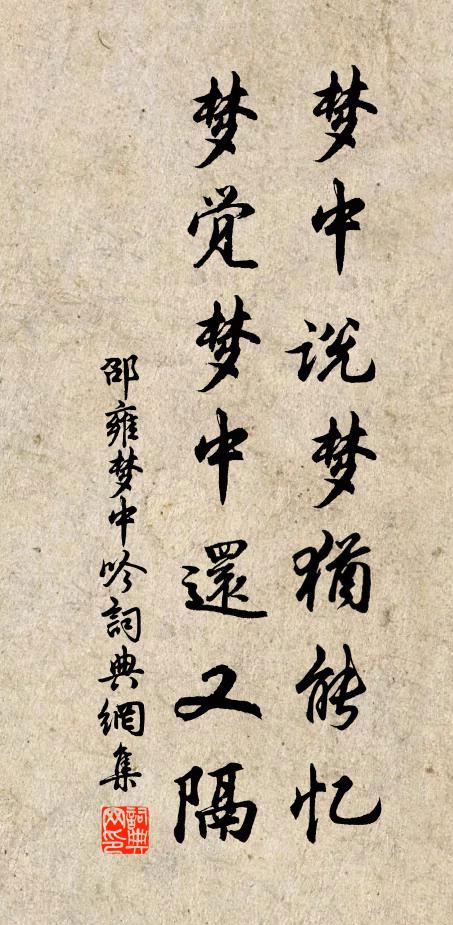 梦中说梦犹能忆
梦觉梦中還又隔
邵雍梦中吟詞典網集
詞典网印